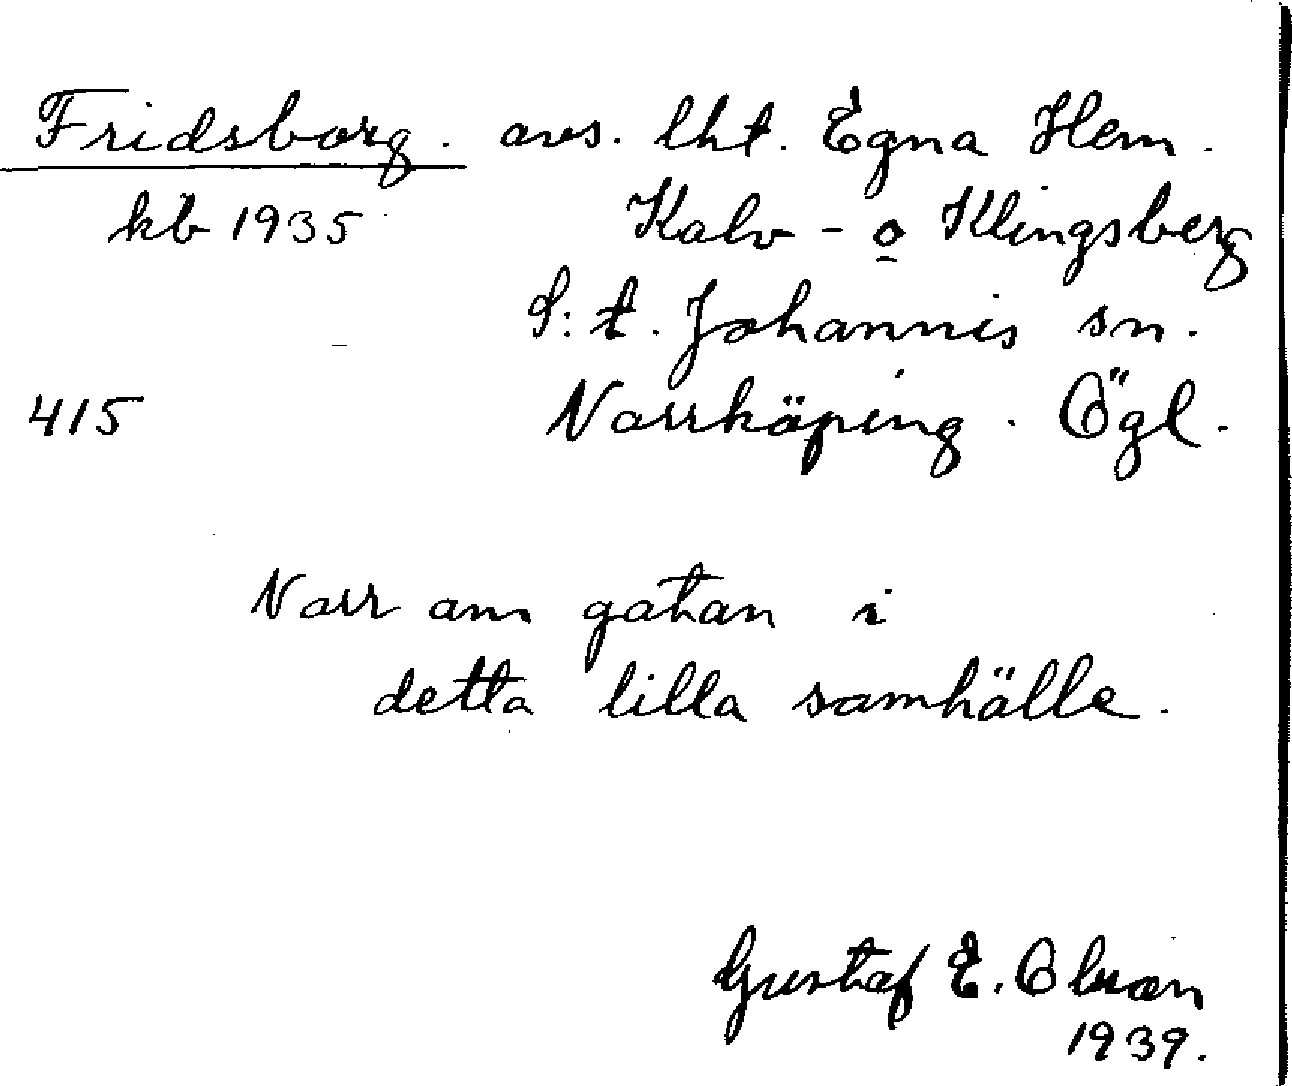 Fridsborg. avs. lht. Egna Hem.
kb 1935 Kalv- o Klingsberg
S:t. Johannis sn.
415 Norrköping. Ögl.
Norr om gatan i
detta lilla samhälle.
Gustaf E. Olsson
1939.